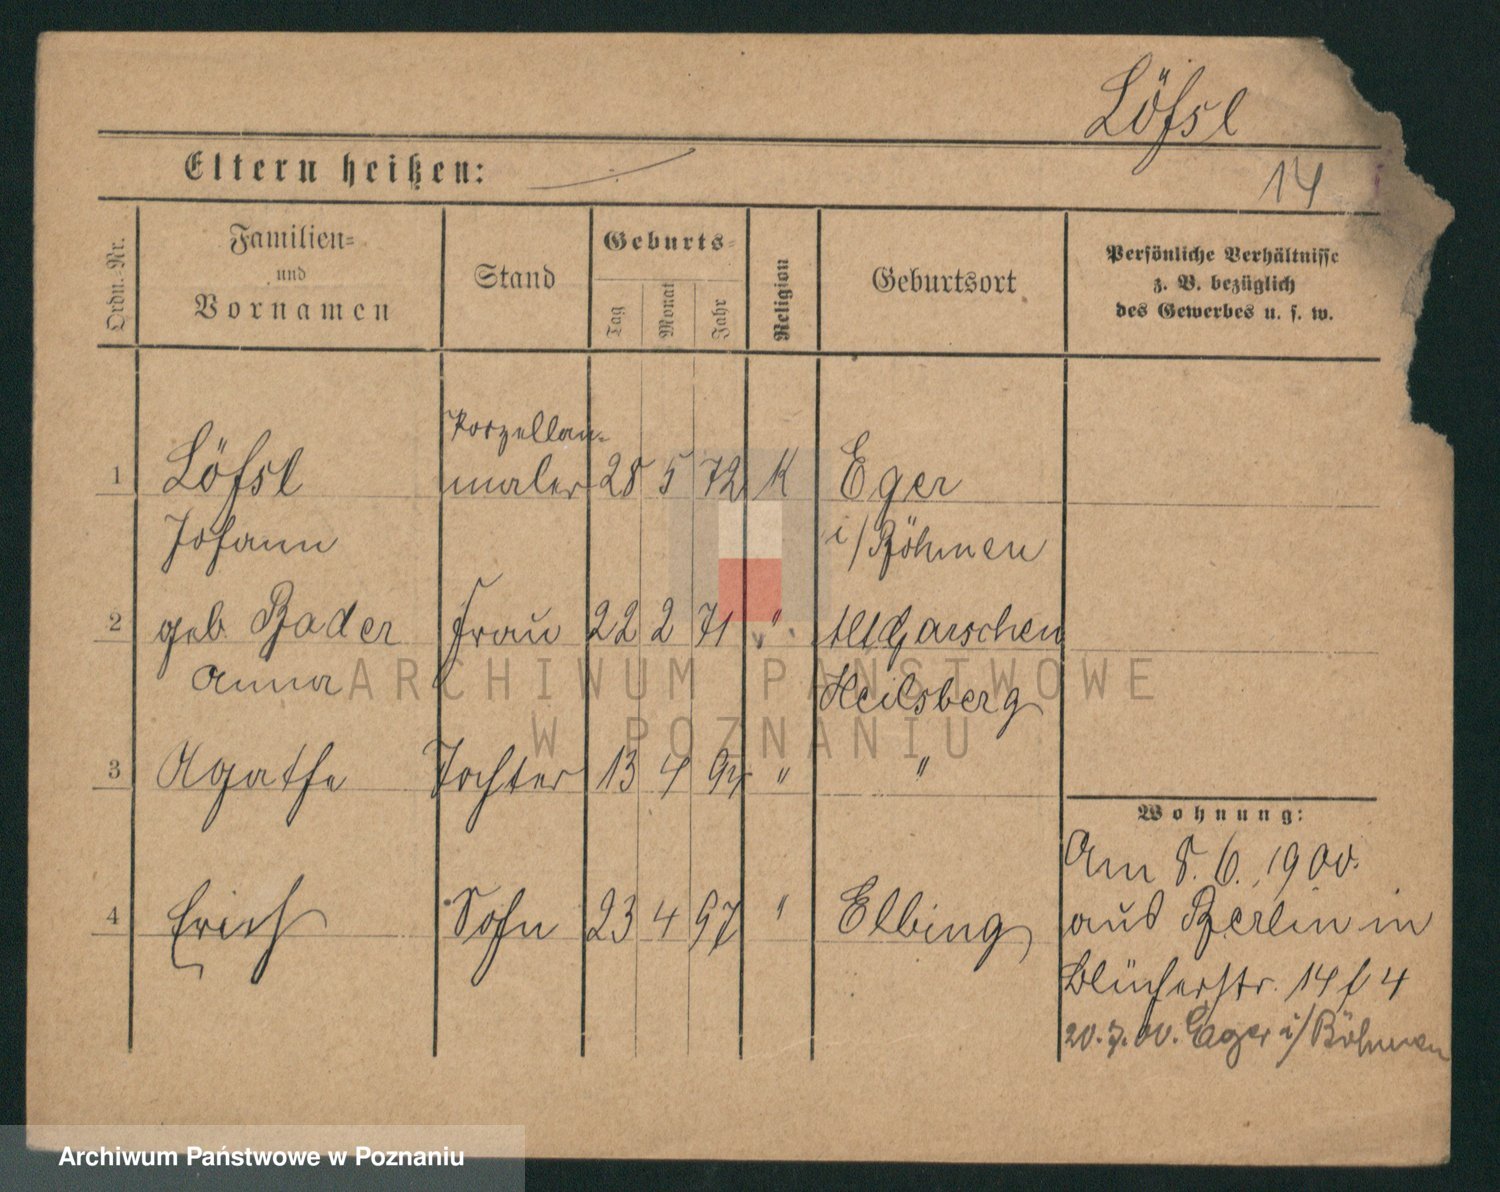 Löfsl
Eltern heißen: —
14
Ordn.-Nr.
Familien=
und
Vornamen
Stand
Geburts=
Tag
Monat
Jahr
Religion
Geburtsort
Persönliche Verhältnisse
z. B. bezüglich
des Gewerbes u. s. w.
Porzellan-
1 Löfsl maler 28 5 72 K Eger
Johann i/Böhmen
2 geb. Bader Frau 22 2 71 " Alt Garschen
Anna Heilsberg
3 Agathe Tochter 13 4 94 " "
Wohnung:
Am 8.6.1900.
4 Erich Sohn 23 4 97 " Elbing
aus Berlin in
Blücherstr. 14 f 4
20.7.00. Eger i/Böhmen
ARCHIWUM PAŃSTWOWE
W POZNANIU
Archiwum Państwowe w Poznaniu